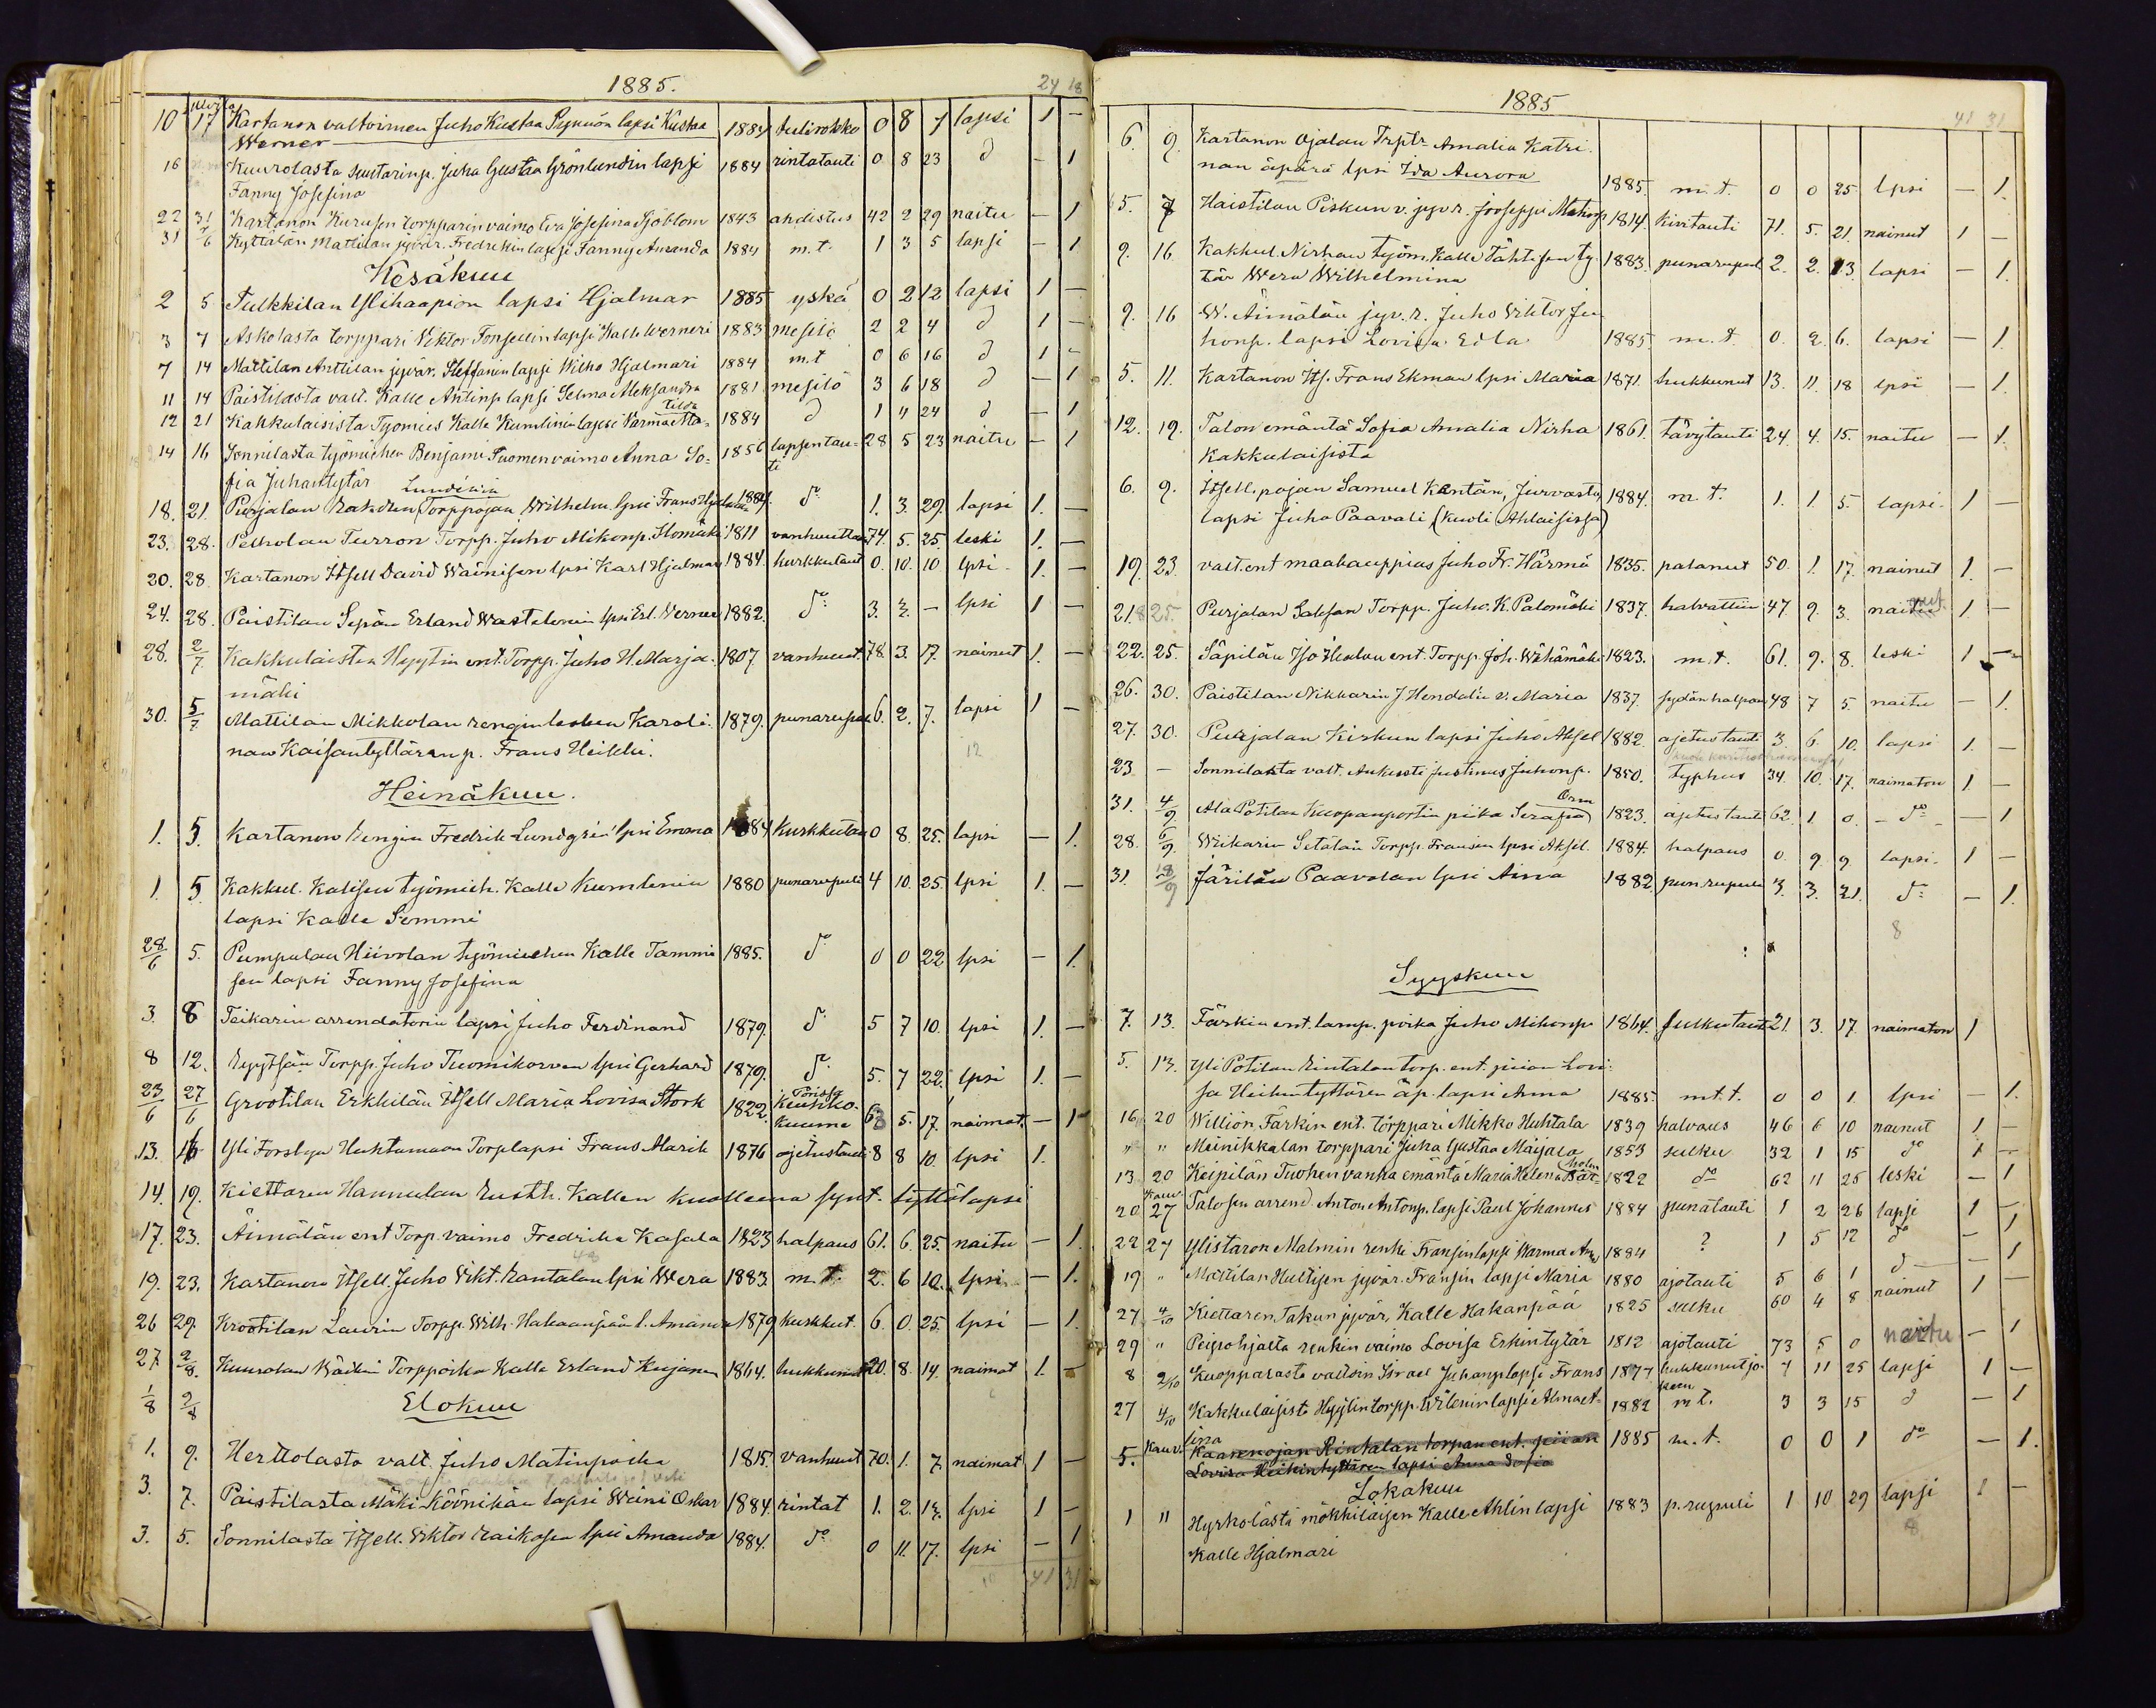 1885.
24 18
10 17 Kartanon valtoimen Juho Kustaa Pynnön lapsi Kustaa 1884 tulirokko 0 8 7 lapsi 1 -
Werner
16 Kuurolasta suutarinp. Juha Gustaa Grönlundin lapsi 1884 rintatauti 0 8 23 d - 1
Fanny Josefina
22 31 Kartanon Kierusen torpparin vaimo Eva Josefina Sjöblom 1843 ahdistus 42 2 29 naitu - 1
31 7/6 Kyttälän Mattilan jyvär. Fredrikin lapsi Fanny Amanda 1884 m.t. 1 3 5 lapsi - 1
Kesäkuu
2 5 Tulkkilan Ylihaapion lapsi Hjalmar 1885 yskä 0 2 12 lapsi 1 -
3 7 Askolasta torppari Viktor Fonsellin lapsi Kalle Werneri 1883 mesilö 2 2 4 d 1 -
7 14 Mattilan Anttilan jyvär. Steffanin lapsi Wilho Hjalmari 1884 m.t 0 6 16 d 1 -
11 14 Paistilasta valt. Kalle Antinp lapsi Selma Aleksandra 1881 mesilö 3 6 18 d - 1
12 21 Kakkulaisista Työmies Kalle Kumlinin lapsi Varma Ma= 1884 d 1 4 24 d - 1
tilda
14 16 Sonnilasta työmiehen Benjami Suomen vaimo Anna So= 1856 lapsentau= 28 5 23 naitu - 1
fia Juhantytär ti
Lundénin
18. 21. Purjalan Rakdun Torppojan Wilhelm lpsi Frans Hjalmar 1884. do 1. 3. 29. lapsi 1. -
23. 28. Pelholan Turron Torpp. Juho Mikonp. Homäki 1811 vanhuutta 74. 5. 25. leski 1. -
20. 28. Kartanon Itsell David Wäinisen lpsi Karl Hjalmar 1884. kurkkutaut 0. 10. 10 lpsi - 1. -
24. 28. Paistilan Sepän Erland Wastelenin lpsi Erl. Verner 1882. do 3. 3. - lpsi 1 -
28. 2/7 Kakkulaisten Hyytin ent. Torpp. Juho H. Marja- 1807 vanhuut 78. 3. 17. nainut 1. -
mäki
30. 5/7 Mattilan Mikkolan rengin lesken Karoli- 1879. punarupuli 6. 2. 7. lapsi 1 -
nan Kaisantyttären p. Frans Heikki. 12
Heinäkuu.
1. 5. Kartanon Rengin Fredrik Lundgrén lpsi Emma 1884 Kurkkutau 0 8. 25. lapsi - 1.
1. 5. Kakkul. Kalisen työmieh. Kalle Kumlenin 1880 punarupuli 4 10. 25. lpsi 1. -
lapsi Kalle Semmi
28/6 5. Pumpulan Hiivolan työmiehen Kalle Tammi 1885. do 0 0 22 lpsi - 1.
sen lapsi Fanny Josefina
3. 8 Teikarin arrendatorin lapsi Juho Ferdinand 1879. do 5 7 10. lpsi 1. -
8 12. Ryytsän Torpp. Juho Tuomikorven lpsi Gerhard 1879. do 5. 7 22. lpsi 1. -
23/6 27/6 Grootilan Erkkilän Itsell Maria Lovisa Stork 1822. Keuhko- 63 5. 17. naimat. - 1
Poristy
kuume
13. 16 Yli Forsbyn Huhtamaan Torp lapsi Frans Marik 1876 ajetustauti 8 8 10. lpsi 1.
14. 19. Kiettaren Hannulan Rusth. Kallen kuolleena synt. tyttölapsi
17. 23. Äimälän ent Torp. vaimo Fredrika Kasala 1823 halpaus 61. 6. 25. naitu - 1.
19. 23. Kartanon Itsell. Juho Vikt. Rantalan lpsi Wera 1883. m.t. 2. 6 10. lpsi - 1.
26 29. Krootilan Laurin Torpp. Wilh. Hakaanpään l. Amanda 1879 kurkkut. 6. 0. 25. lpsi - 1.
27. 2/8. Kuurolan Wäikin Torppoika Kalle Erland Kujanen 1864. hukkunut 20. 8. 14. naimat 1. -
1/8 2/8 Elokuu
1. 9. Herttolasta valt. Juho Matinpoika 1815. vanhuut 70. 1. 7. naimat 1 -
3. 7. Paistilasta Mäki-Köönikän lapsi Wäinö Oskar 1884. rintat 1. 2. 13. lpsi 1 -
3. 5. Sonnilasta Itsell. Viktor Raikosen lpsi Amanda 1884. do 0 11. 17. lpsi - 1
10 41 31
1885
41 31
6. 9. Kartanon Ojalan Trptr Amalia Katri-
nan äpärä lpsi Ida Aurora 1885 m.t. 0 0 25 lpsi - 1.
5. 7 Haistilan Piskun v. jyv. r. Jooseppi Matinp 1814. kivitauti 71. 5. 21. nainut 1 -
9. 16. Kakkul. Nirhan työm. Kalle Tähtisen ty- 1883. punarupul 2. 2. 13. lapsi - 1.
tär Wera Wilhelmina
9. 16 W. Äimälän jyv. r. Juho Viktor Ju
honp. lapsi Lovisa Edla 1885. m.t. 0. 2. 6. lapsi - 1.
5. 11. Kartanon Its. Frans Ekman lpsi Maria 1871. hukkunut 13. 11. 18 lpsi - 1.
12. 19. Talon emäntä Sofia Amalia Nirha 1861. Tävytauti 24. 4. 15. naitu - 1.
Kakkulaisista
6. 9. Itsell. pojan Samuel Kentän, Jurvasta 1884. m.t. 1. 1. 5. lapsi. 1 -
lapsi Juho Paavali (kuoli Ahlaisissa)
19. 23. valt. ent maakauppias Juho Fr. Härmä 1835. palanut 50. 1. 17. nainut 1. -
21. 25. Purjalan Saksan Torpp. Juho. K. Palomäki 1837. halvattiin 47. 9. 3. nainut 1 -
22. 25. Säpilän Iso Heulan ent. Torpp. Joh. Wähämäki 1823. m.t. 61. 9. 8. leski 1 -
26. 30. Paistilan Nikkarin J Hendelin v. Maria 1837. sydänhalpau 48 7 5. naitu - 1.
27. 30. Purjalan Kirkun lapsi Juho Aksel 1882. ajetustauti 3. 6. 10. lapsi 1. -
23 - Sonnilasta valt. Aukusti Justinus Juhonp. 1850. typhus 34. 10. 17. naimaton 1 -
Orm
31. 4/9 Ala Potilan Kuopanportin piika Serafia 1823. ajetus tauti 62. 1 0. - do - - 1
28. 6/9. Weikarin Setälän Torpp. Fransin lpsi Aksel. 1884. halpaus 0. 9. 9. lapsi. 1 -
31. 18/9 Järilän Paavolan lpsi Aina 1882 pun. rupuli 3. 3. 21. do - 1.
8
Syyskuu
7. 13. Färkin ent. lamp. poika Juho Mikonp 1864. sulkutaut 21. 3. 17. naimaton 1
5. 13. Yli Potilan Rintalan torp. ent. piian Lovi-
sa Heikintyttären äp. lapsi Anna 1885. m.t.t. 0 0 1. lpsi - 1.
16 20 Willion Färkin ent. törppari Mikko Huhtala 1839 halvaus 46 6 10 nainut 1 -
" " Meinikkalan torppari Juha Gustaa Maijala 1853 sulku 32 1 15 do 1 -
holm
13 20 Keipilän Tuohen vanha emäntä Maria Helena Bär= 1822 do 62 11 25 leski - 1
20 27 Talosen arrend. Anton Antonp. lapsi Paul Johannes 1884 punatauti 1 2 26 lapsi 1 -
22 27 Ylistaron Malmin renki Fransin lapsi Warma 1884 ? 1 5 12 do - 1
19 " Mattilan Hultisen jyvär. Fransin lapsi Maria 1880 ajotauti 5 6 1 d - 1
27 4/10 Kiettaren Takun jyvär, Kalle Hakanpää 1825 sulku 60 4 8 nainut 1 -
29 " Peipohjalta renkin vaimo Lovisa Erkintytär 1812 ajotauti 73 5 0 naitu - 1
8 2/10 Kuopparasta valtoin Israel Juhanp lapsi Frans 1877 hukkunut jo- 7 11 25 lapsi 1 -
keen
27 4/10 Kakkulaisista Hyytin torpp. Wilenin lapsi Alma E- 1882 m.t. 3 3 15 d - 1
lina
5. Kauv. Kaarenojan Rintalan torpan ent. piian 1885 m.t. 0 0 1 do - 1.
Lovisa Heikintyttären lapsi Anna Sofia
Lokakuu
1 11 Hyrkölästä mökkiläisen Kalle Ahlin lapsi 1883 p. rupuli 1 10 29 lapsi 1 -
Kalle Hjalmari 8